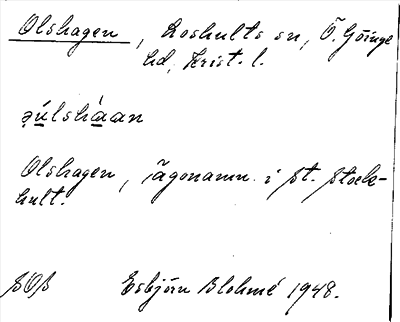 Olshagen, Loshults sn, Ö. Göinge
hd, Krist. l.
ə̣úlshàan
Olshagen, ägonamn i St. Stock-
hult.
SOS Esbjörn Blohmé 1948.